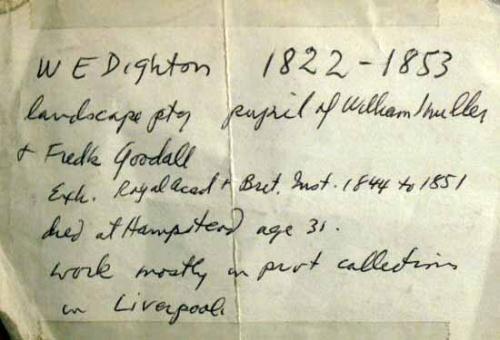 W E Dighton 1822-1853
landscape ptg pupil of William Muller
& Fredk Goodall
Exh. Royal Acad + Brit. Inst. 1844 to 1851
died at Hampstead age 31.
work mostly in prvt collections
in Liverpool